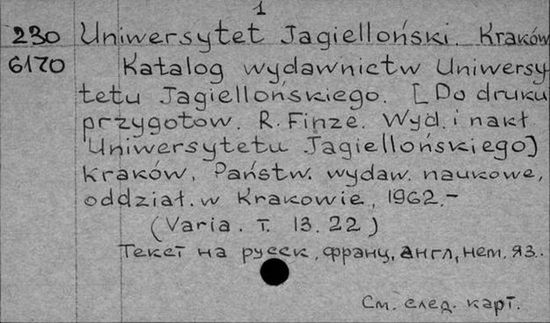 1
230 Uniwersytet Jagielloński. Kraków
6170 Katalog wydawnictw Uniwersy-
tetu Jagiellońskiego. [Do druku
przygotow. R. Finze. Wyd. i nakł.
Uniwersytetu Jagiellońskiego]
Kraków, Państw. wydaw. naukowe,
oddział. w Krakowie, 1962.-
(Varia. T. 13. 22)
Текст на русск., франц., англ., нем. яз..
См. след. карт.